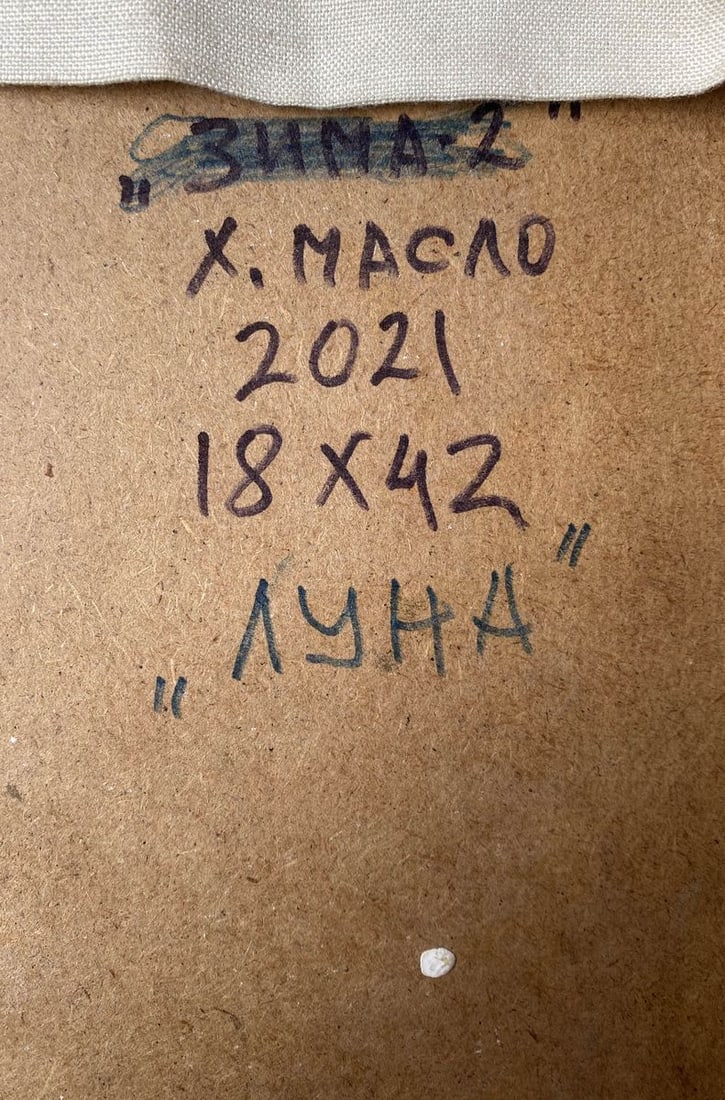 „ЗИМА-2"
Х. МАСЛО
2021
18 Х 42
„ЛУНА"